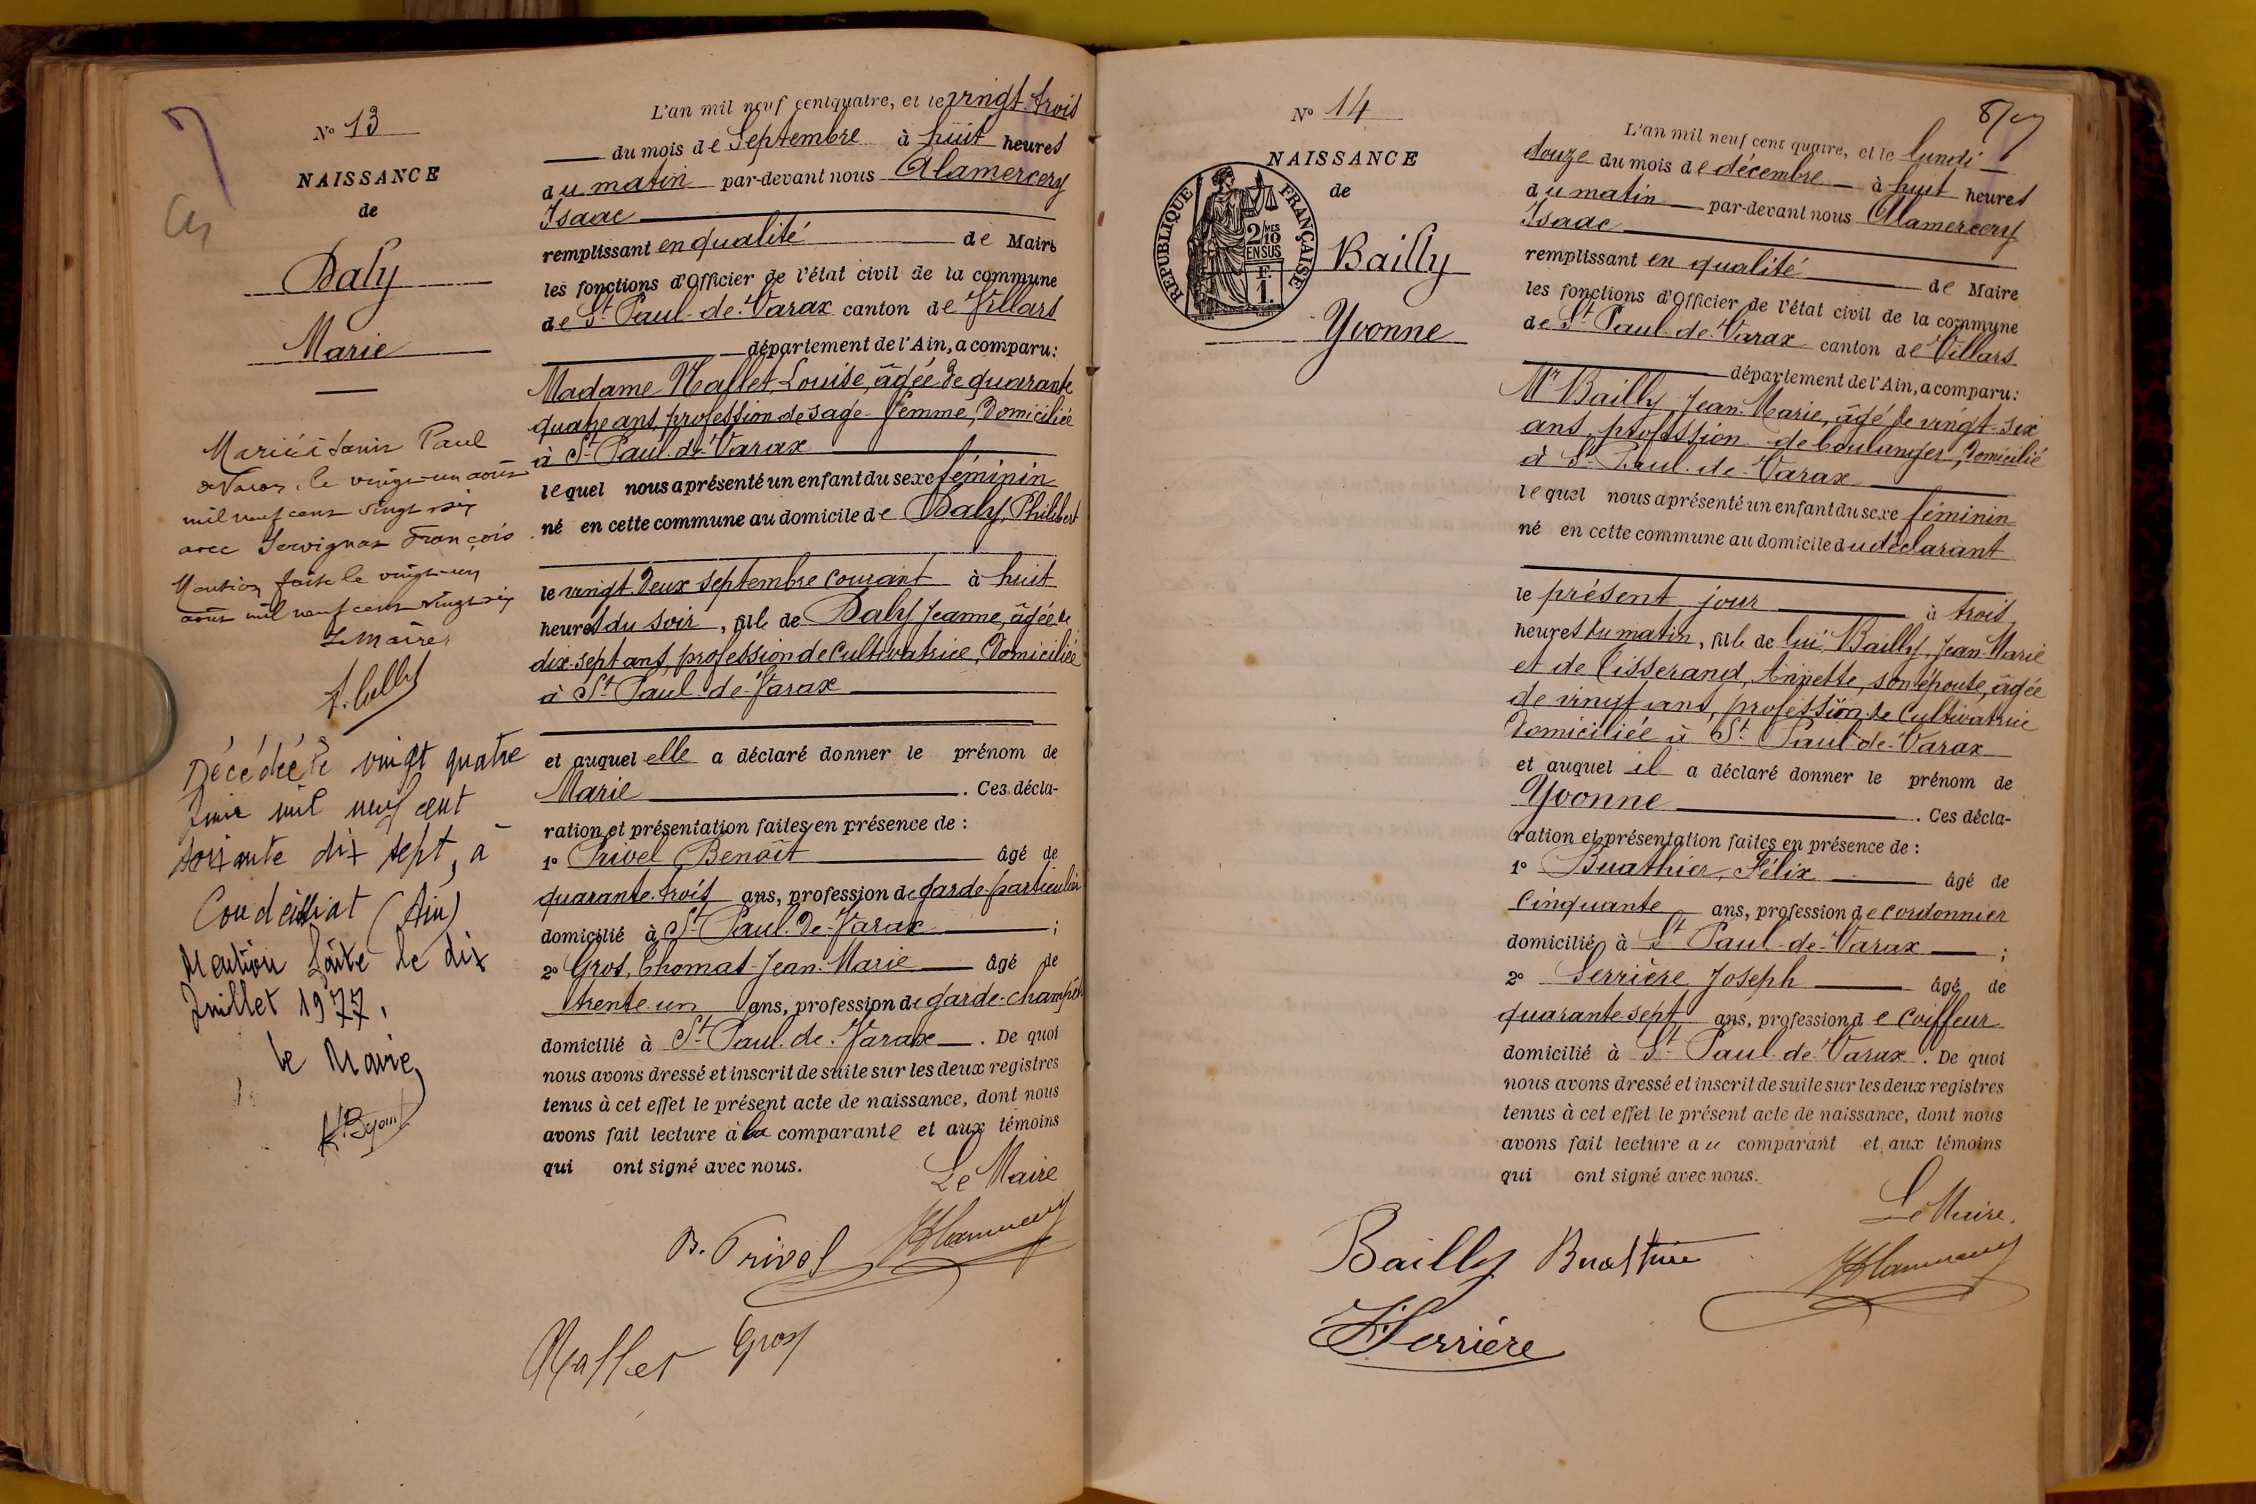 N° 13
NAISSANCE
de
Daly
Marie
Mariée à Saint Paul
de Varax, le vingt-un août
mil neuf cent vingt six
avec Servignat François
Mention faite le vingt-un
août mil neuf cent vingt-six
Le Maire,
Décédée le vingt quatre
Juin mil neuf cent
soixante dix sept, à
Condeissiat (Ain)
Mention faite le dix
Juillet 1977.
le Maire,
L'an mil neuf cent quatre, et le vingt-trois
du mois de Septembre à huit heures
du matin par-devant nous Alamercery
Isaac
remplissant en qualité de Maire
les fonctions d'Officier de l'état civil de la commune
de St Paul-de-Varax canton de Villars
département de l'Ain, a comparu:
Madame Mallet Louise, âgée de quarante
quatre ans, profession de sage-femme, domiciliée
à St Paul-de-Varax
lequel nous a présenté un enfant du sexe féminin
né en cette commune au domicile de Daly, Philibert
le vingt-deux septembre courant à huit
heures du soir, fille de Daly Jeanne, âgée de
dix-sept ans, profession de cultivatrice, domiciliée
à St Paul-de-Varax
et auquel elle a déclaré donner le prénom de
Marie. Ces décla-
ration et présentation faites en présence de :
1° Privel Benoît âgé de
quarante-trois ans, profession de garde-particulier
domicilié à St Paul-de-Varax ;
2° Gros, Thomas-Jean-Marie âgé de
trente-un ans, profession de garde-champêt
domicilié à St Paul-de-Varax. De quoi
nous avons dressé et inscrit de suite sur les deux registres
tenus à cet effet le présent acte de naissance, dont nous
avons fait lecture à la comparante et aux témoins
qui ont signé avec nous.
Le Maire
B. Privel
Mallet Gros
N° 14
NAISSANCE
de
RÉPUBLIQUE FRANÇAISE
2/10 MES
EN SUS
F.
1.
Bailly
Yvonne
L'an mil neuf cent quatre, et le lundi
douze du mois de décembre à huit heures
du matin par-devant nous Alamercery
Isaac
remplissant en qualité de Maire
les fonctions d'Officier de l'état civil de la commune
de St Paul-de-Varax canton de Villars
département de l'Ain, a comparu:
Mr Bailly Jean-Marie, âgé de vingt-six
ans, profession de boulanger, domicilié
à St Paul-de-Varax
lequel nous a présenté un enfant du sexe féminin
né en cette commune au domicile du déclarant
le présent jour à trois
heures du matin, fille de lui Bailly, Jean-Marie
et de Tisserand, Annette, son épouse, âgée
de vingt ans, profession de cultivatrice
domiciliée à St Paul-de-Varax
et auquel il a déclaré donner le prénom de
Yvonne. Ces décla-
ration et présentation faites en présence de :
1° Buathier, Félix âgé de
cinquante ans, profession de cordonnier
domicilié à St Paul-de-Varax ;
2° Serrière Joseph âgé de
quarante-sept ans, profession de coiffeur
domicilié à St Paul-de-Varax. De quoi
nous avons dressé et inscrit de suite sur les deux registres
tenus à cet effet le présent acte de naissance, dont nous
avons fait lecture au comparant et aux témoins
qui ont signé avec nous.
Le Maire.
Bailly Buathier
Serrière